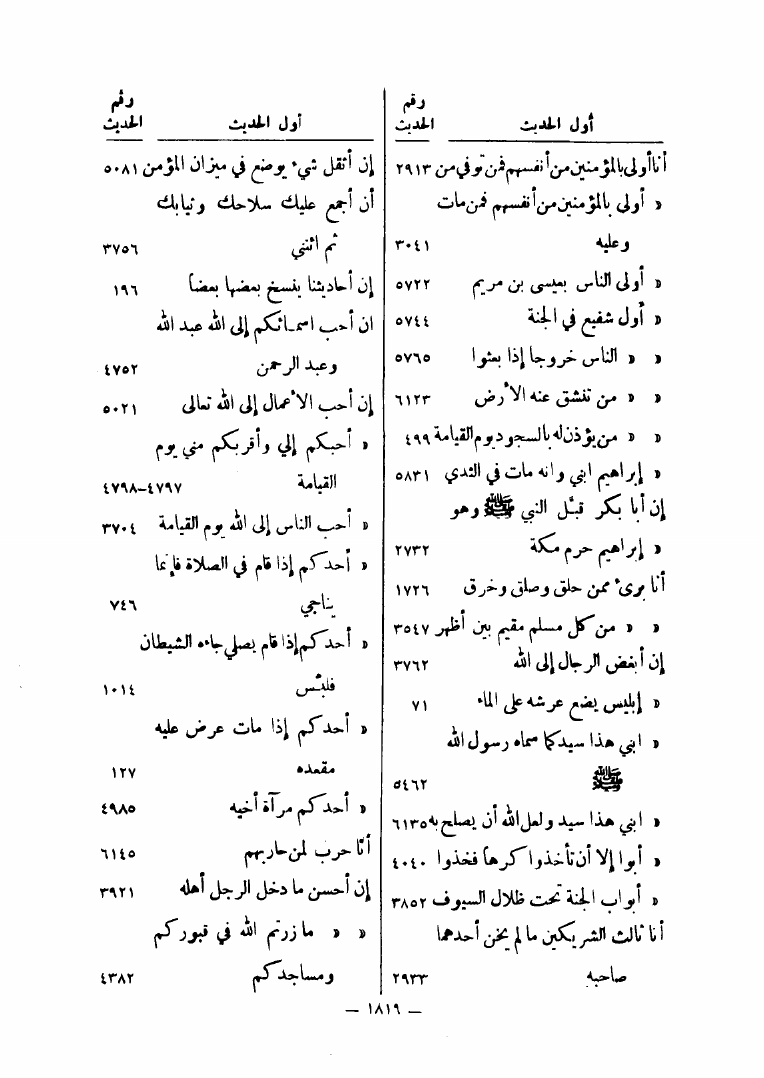 رقم
أول الحديث الحديث
أنا أولى بالمؤمنين من أنفسهم فمن توفي من ٢٩١٣
« أولى بالمؤمنين من أنفسهم فمن مات
وعليه ٣٠٤١
« أولى الناس بعيسى بن مريم ٥٧٢٢
« أول شفيع في الجنة ٥٧٤٤
« « الناس خروجا إذا بعثوا ٥٧٦٥
« « من تنشق عنه الأرض ٦١٢٣
« « من يؤذن له بالسجود يوم القيامة ٤٩٩
« إبراهيم ابني وانه مات في الثدي ٥٨٣١
إن أبا بكر قبَّل النبي ﷺ وهو
« إبراهيم حرم مكة ٢٧٣٢
أنا بريء ممن حلق وصلق وخرق ١٧٢٦
« « من كل مسلم مقيم بين أظهر ٣٥٤٧
إن أبغض الرجال إلى الله ٣٧٦٢
« إبليس يضع عرشه على الماء ٧١
« ابني هذا سيد كما سماه رسول الله
ﷺ ٥٤٦٢
« ابني هذا سيد ولعل الله أن يصلح به ٦١٣٥
« أبوا إلا أن تأخذوا كرهاً فخذوا ٤٠٤٠
« أبواب الجنة تحت ظلال السيوف ٣٨٥٢
أنا ثالث الشريكين ما لم يخن أحدهما
صاحبه ٢٩٣٣
رقم
أول الحديث الحديث
إن أثقل شيء يوضع في ميزان المؤمن ٥٠٨١
أن أجمع عليك سلاحك وثيابك
ثم ائتني ٣٧٥٦
إن أحاديثنا ينسخ بعضها بعضاً ١٩٦
ان أحب اسمائكم إلى الله عبد الله
وعبد الرحمن ٤٧٥٢
إن أحب الأعمال إلى الله تعالى ٥٠٢١
« أحبكم إلي وأقربكم مني يوم
القيامة ٤٧٩٧-٤٧٩٨
« أحب الناس إلى الله يوم القيامة ٣٧٠٤
« أحدكم إذا قام في الصلاة فإنما
يناجي ٧٤٦
« أحدكم إذا قام يصلي جاءه الشيطان
فلبَّس ١٠١٤
« أحدكم إذا مات عرض عليه
مقعده ١٢٧
« أحدكم مرآة أخيه ٤٩٨٥
أنا حرب لمن حاربهم ٦١٤٥
إن أحسن ما دخل الرجل أهله ٣٩٢١
« « ما زرتم الله في قبوركم
ومساجدكم ٤٣٨٢
— ١٨١٩ —